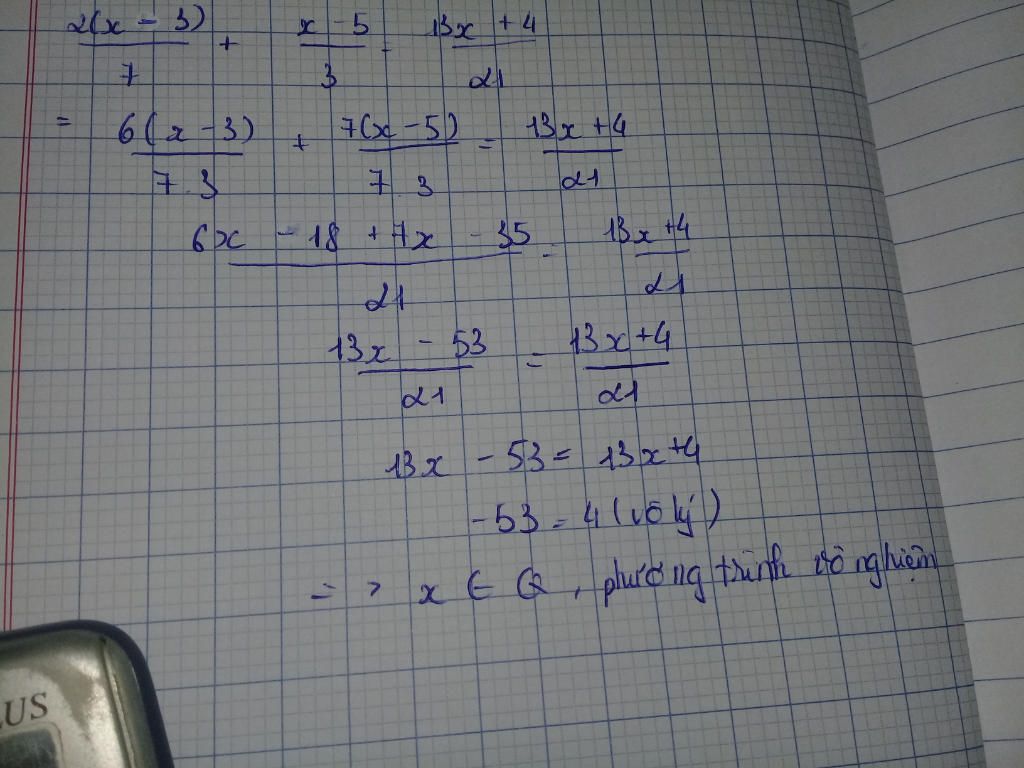 2(x - 3)/7 + x - 5/3 = 13x + 4/21
= 6(x - 3)/7.3 + 7(x - 5)/7.3 = 13x + 4/21
6x - 18 + 7x - 35/21 = 13x + 4/21
13x - 53/21 = 13x + 4/21
13x - 53 = 13x + 4
-53 = 4 (vô lý)
=> x ∈ Q, phương trình vô nghiệm
LUS